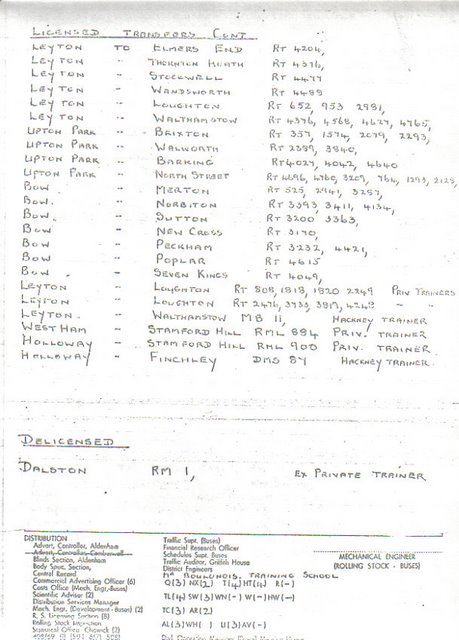 LICENSED TRANSFERS CONT
LEYTON TO ELMERS END RT 4204,
LEYTON " THORNTON HEATH RT 4376,
LEYTON " STOCKWELL RT 4477
LEYTON " WANDSWORTH RT 4489
LEYTON " LOUGHTON RT 652, 953 2981,
LEYTON " WALTHAMSTOW RT 4376, 4568, 4627, 4765,
UPTON PARK " BRIXTON RT 357, 1574, 2079, 2293,
UPTON PARK " WALWORTH RT 2389, 3840,
UPTON PARK " BARKING RT 4027, 4042, 4640
UPTON PARK " NORTH STREET RT 4696, 4760, 3209, 764, 1293, 2128,
BOW " MERTON RT 525, 2941, 3287,
BOW. " NORBITON RT 3393, 3411, 4134,
BOW " SUTTON RT 3200 3363,
BOW " NEW CROSS RT 3170,
BOW " PECKHAM RT 3232, 4421,
BOW " POPLAR RT 4615
BOW. " SEVEN KINGS RT 4049,
LEYTON " LOUGHTON RT 808, 1818, 1820 2249 PRIV TRAINERS
LEYTON " LOUGHTON RT 2476, 3733, 3819, 4248 " "
LEYTON. " WALTHAMSTOW MB 11, HACKNEY TRAINER
WEST HAM " STAMFORD HILL RML 884 PRIV. TRAINER
HOLLOWAY " STAMFORD HILL RML 900 PRIV. TRAINER
HOLLOWAY " FINCHLEY DMS 84 HACKNEY TRAINER.
DELICENSED
DALSTON RM 1, EX PRIVATE TRAINER
DISTRIBUTION
Advert. Controller, Aldenham
Advert. Controller, Camberwell
Blinds Section, Aldenham
Body Supt. Section,
Central Record
Commercial Advertising Officer (6)
Costs Office (Mech. Engr. Buses)
Scientific Adviser (2)
Distribution Services Manager
Mech. Engr. (Development - Buses) (2)
R. S. Licensing Section (8)
Rolling Stock Inspectors
Statistical Office, Chiswick (2)
Traffic Supt. (Buses)
Financial Research Officer
Schedules Supt. Buses
Traffic Auditor, Griffith House
District Engineers
MR BOULONOIS, TRAINING SCHOOL
Q(3) NX(2) T(4) HT(4) R(-)
TL(4) SW(3) WN(-) W(-) HW(-)
TC(3) AR(2)
AL(3) WH( ) U(3) AV(-)
MECHANICAL ENGINEER
(ROLLING STOCK - BUSES)